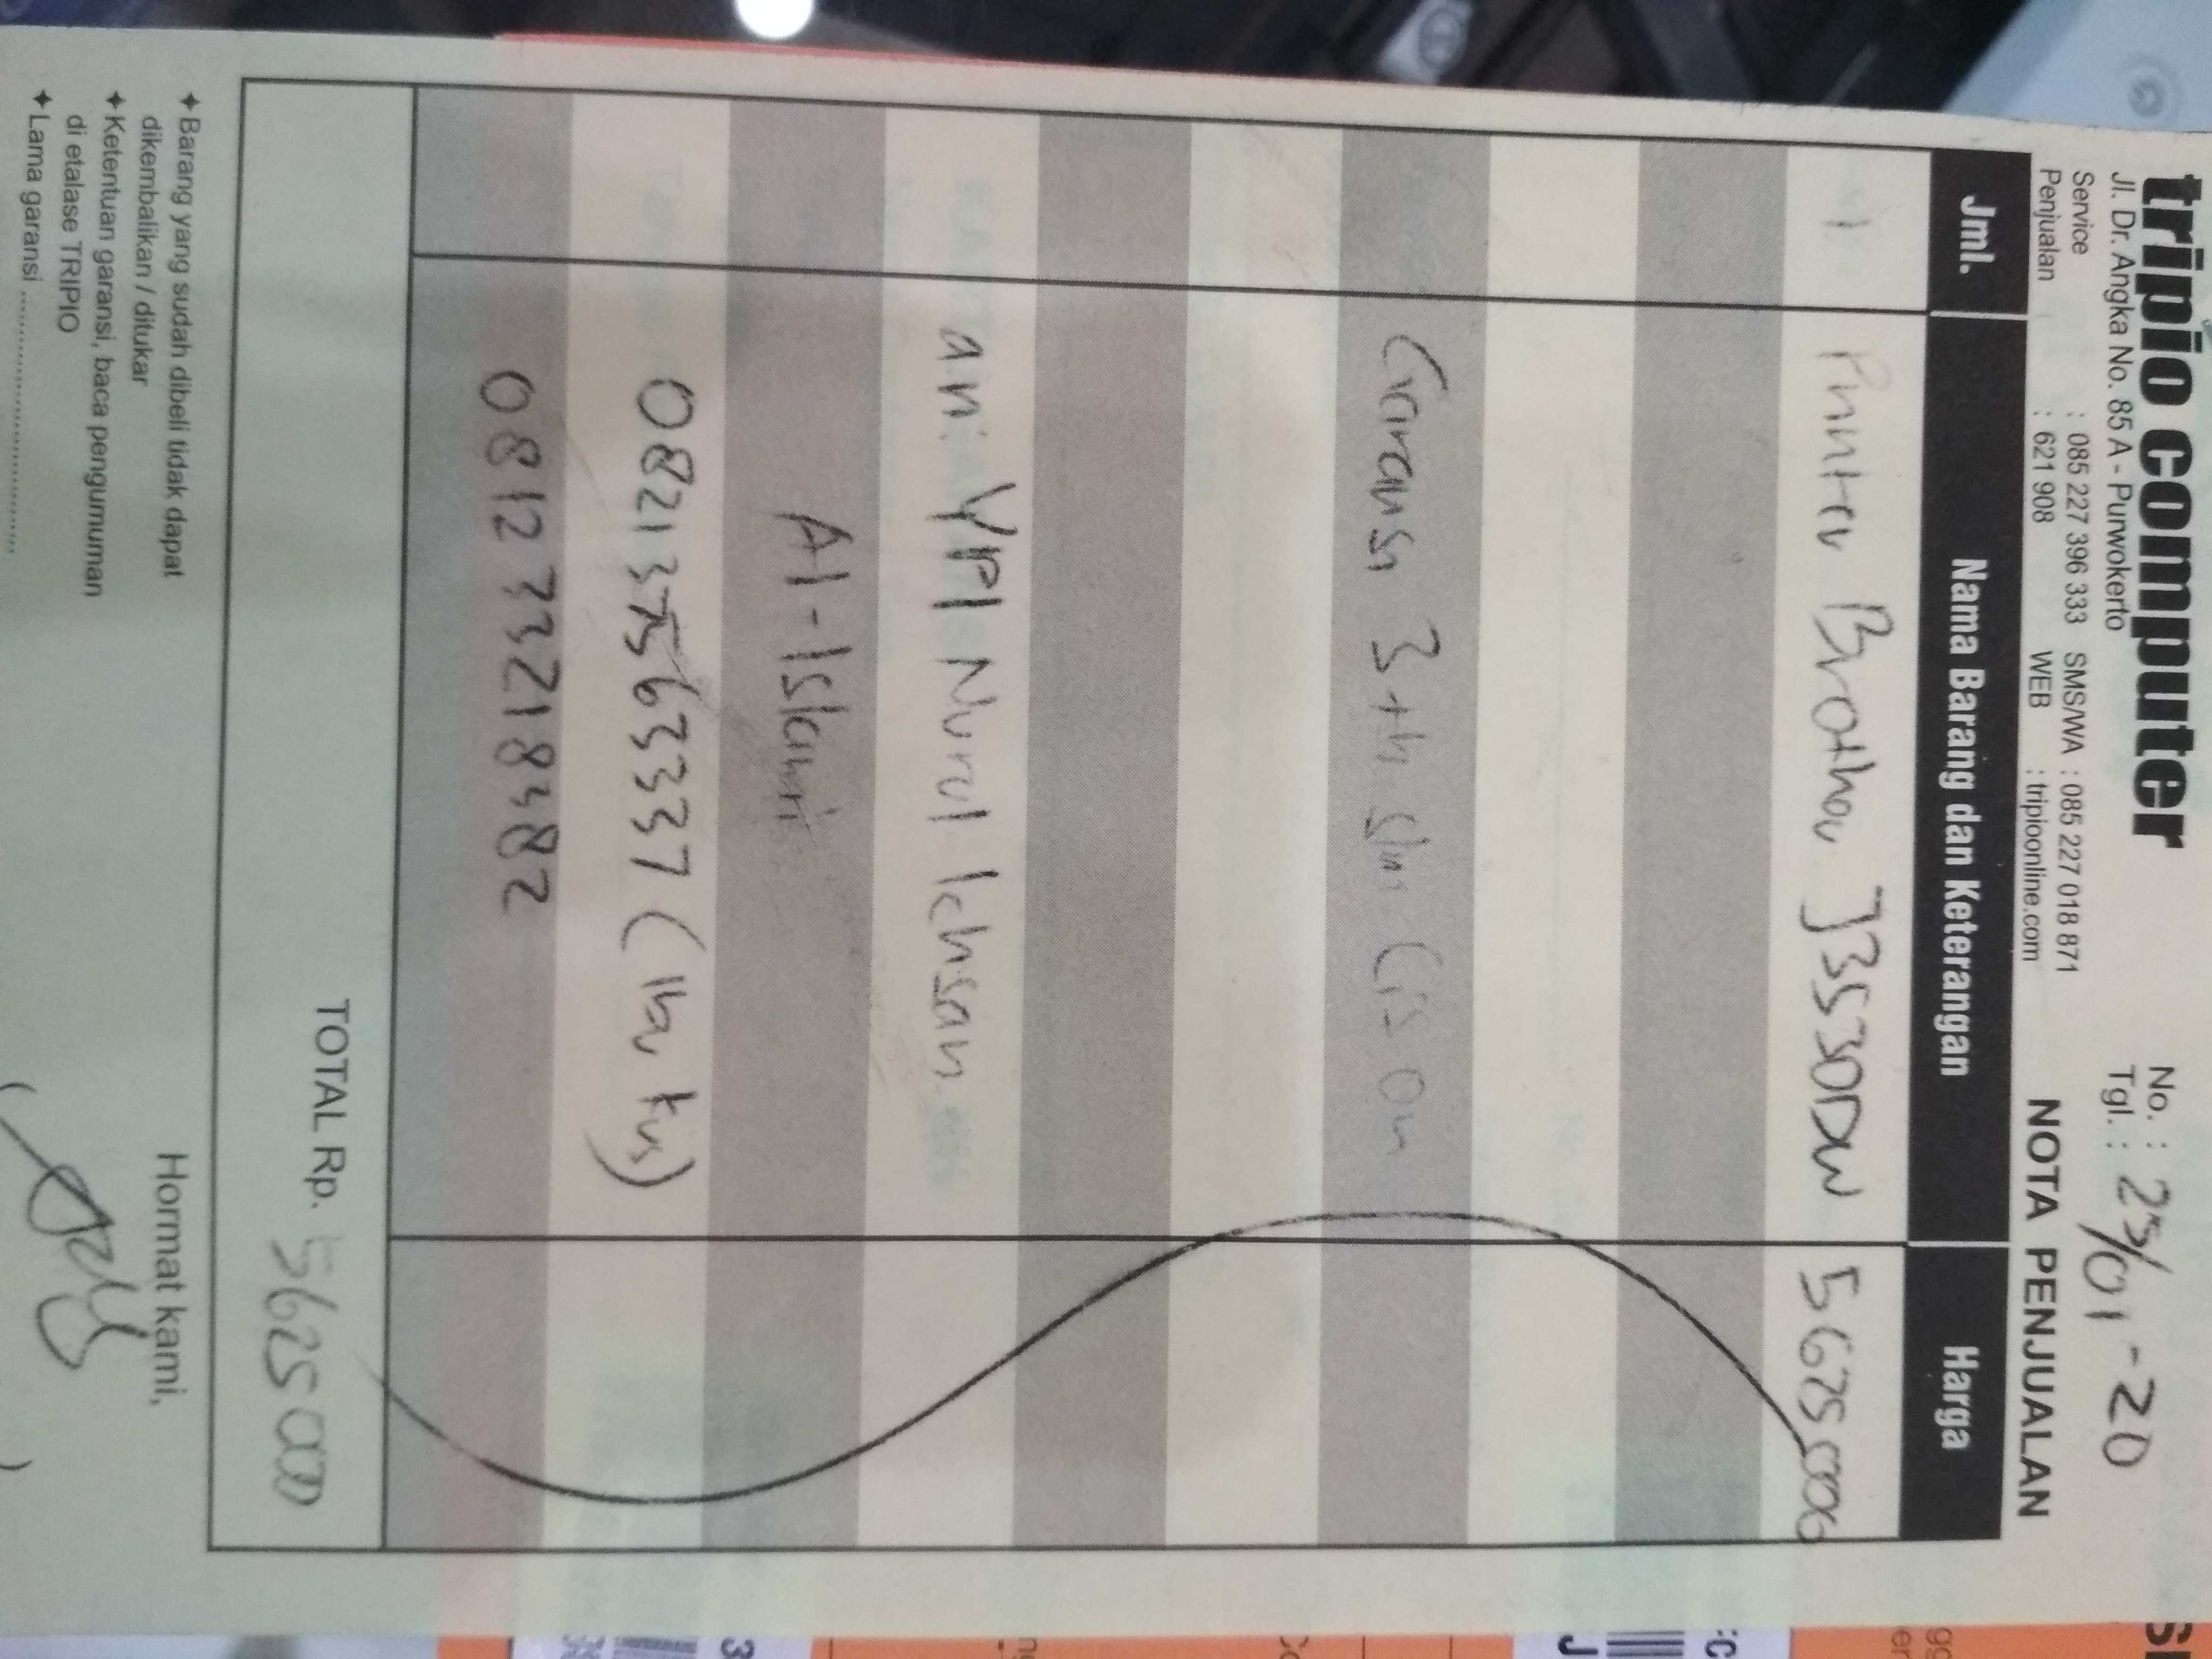 tripio computer
Jl. Dr. Angka No. 85 A - Purwokerto
Service : 085 227 396 333 SMS/WA : 085 227 018 871
Penjualan : 621 908 WEB : tripioonline.com
No. :
Tgl. : 25/01-20
NOTA PENJUALAN
Jml. Nama Barang dan Keterangan Harga
1 Printer Brother J3530DW 5625000
Garansi 3 th On
an: YPI Nurul Ichsan
Al-Islami
082137563337 (Ibu tus)
081233218382
TOTAL Rp. 5625000
✦ Barang yang sudah dibeli tidak dapat
dikembalikan / ditukar
✦ Ketentuan garansi, baca pengumuman
di etalase TRIPIO
✦ Lama garansi ..............................
Hormat kami,
( )